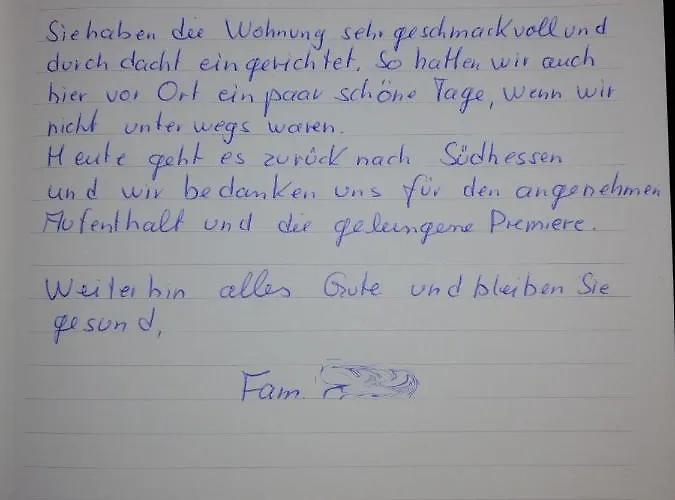 Sie haben die Wohnung sehr geschmackvoll und
durchdacht eingerichtet. So hatten wir auch
hier vor Ort ein paar schöne Tage, wenn wir
nicht unterwegs waren.
Heute geht es zurück nach Südhessen
und wir bedanken uns für den angenehmen
Aufenthalt und die gelungene Premiere.
Weiterhin alles Gute und bleiben Sie
gesund,
Fam.